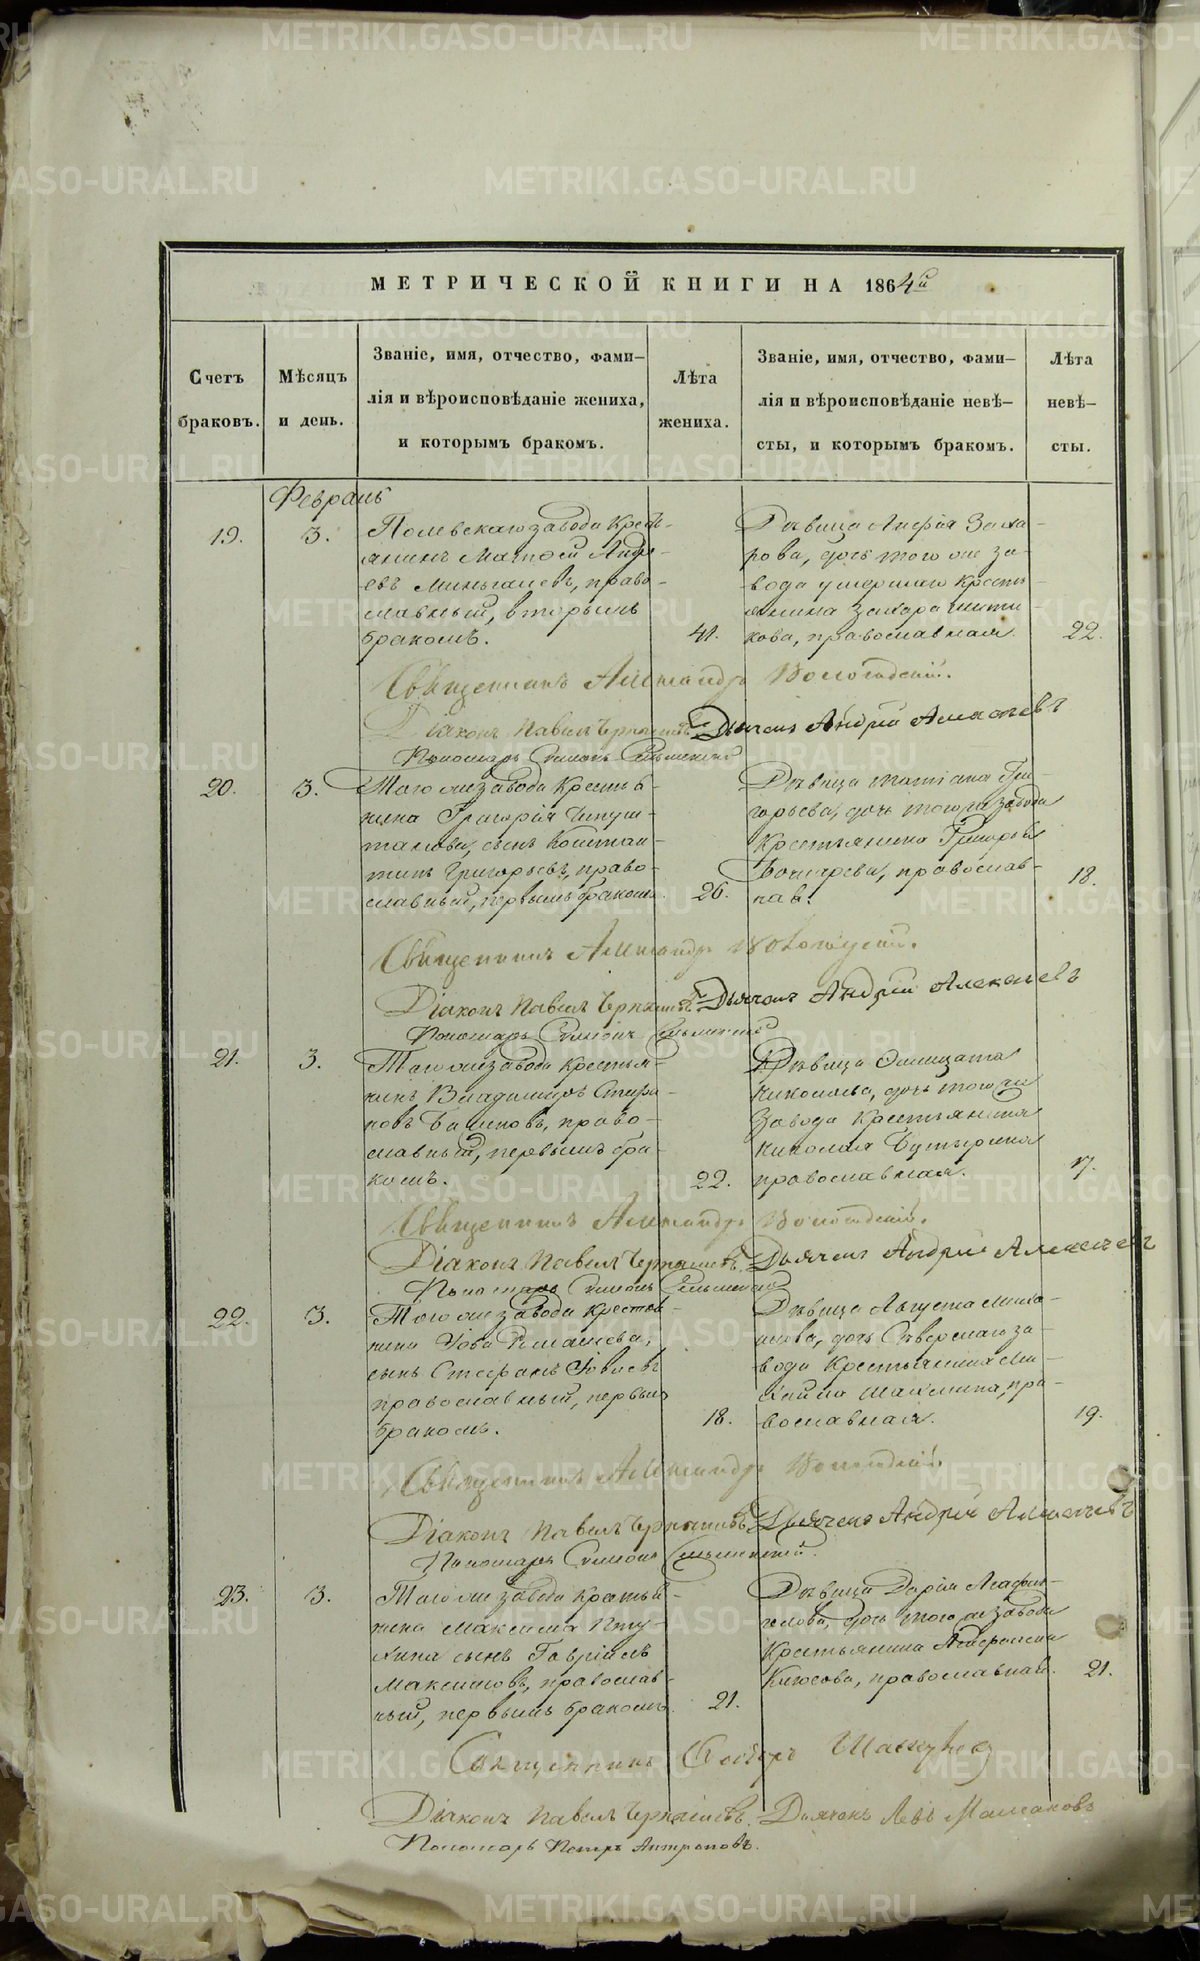 МЕТРИЧЕСКОЙ КНИГИ НА 1864й
Счетъ браковъ.
Мѣсяцъ и день.
Званіе, имя, отчество, фами-
лія и вѣроисповѣданіе жениха,
и которымъ бракомъ.
Лѣта жениха.
Званіе, имя, отчество, фами-
лія и вѣроисповѣданіе невѣ-
сты, и которымъ бракомъ.
Лѣта невѣ-
сты.
Февраль
19.
3.
Полевскаго завода Кресть-
янинъ Матѳей Андре-
евъ православ-
славный, вторымъ
бракомъ.
41.
Дѣвица Анфія Заха-
рова, дочь того же за-
вода умершаго Кресть-
янина Захара
кова, православная.
22.
Священникъ Александръ Вологодскій.
Діаконъ Павелъ Чернышевъ Дьячекъ Андрей Алексѣевъ
Пономарь Симонъ
20.
3.
Того же завода Крестья-
нина Григорія
сынъ Констан-
тинъ Григорьевъ, право-
славный, первымъ бракомъ.
26.
Дѣвица Татіана Гри-
горьева, дочь того же завода
Крестьянина Григорья
православ-
ная.
18.
Священникъ Александръ Вологодскій.
Діаконъ Павелъ Чернышевъ Дьячекъ Андрей Алексѣевъ
Пономарь Симонъ
21.
3.
Того же завода Крестья-
нинъ Владимиръ Стефа-
новъ право-
славный, первымъ бра-
комъ.
22.
Дѣвица Елисавета
Николаева, дочь того же
завода Крестьянина
Николая Бутырина
православная.
17.
Священникъ Александръ Вологодскій.
Діаконъ Павелъ Чернышевъ Дьячекъ Андрей Алексѣевъ
Пономарь Симонъ
22.
3.
Того же завода Крестья-
нина Іова
сынъ Стефанъ Іовлевъ
православный, первымъ
бракомъ.
18.
Дѣвица Августа Миха-
илова, дочь Сѣверскаго за-
вода Крестьянина Ми-
хаила пра-
вославная.
19.
Священникъ Александръ Вологодскій.
Діаконъ Павелъ Чернышевъ Дьячекъ Андрей Алексѣевъ
Пономарь Симонъ
23.
3.
Того же завода Крестья-
нина Максима Пту-
хина сынъ Гавріилъ
Максимовъ, православ-
ный, первымъ бракомъ.
21.
Дѣвица Дарія
дочь того же завода
Крестьянина
православная.
21.
Священникъ
Діаконъ Павелъ Чернышевъ. Дьячекъ Левъ
Пономарь Петръ Антроповъ.
METRIKI.GASO-URAL.RU